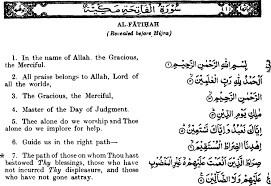 سُورَةُ الْفَاتِحَةِ مَكِّيَّةٌ
AL-FĀTIḤAH
(Revealed before Hijra)
1. In the name of Allah, the Gracious,
the Merciful.
2. All praise belongs to Allah, Lord of
all the worlds,
3. The Gracious, the Merciful,
4. Master of the Day of Judgment.
5. Thee alone do we worship and Thee
alone do we implore for help.
6. Guide us in the right path—
7. The path of those on whom Thou hast
bestowed Thy blessings, those who have
not incurred Thy displeasure, and those
who have not gone astray.
بِسْمِ اللهِ الرَّحْمٰنِ الرَّحِيْمِ
اَلْحَمْدُ لِلّٰهِ رَبِّ الْعٰلَمِيْنَ
الرَّحْمٰنِ الرَّحِيْمِ
مٰلِكِ يَوْمِ الدِّيْنِ
اِيَّاكَ نَعْبُدُ وَاِيَّاكَ نَسْتَعِيْنُ
اِهْدِنَا الصِّرَاطَ الْمُسْتَقِيْمَ
صِرَاطَ الَّذِيْنَ اَنْعَمْتَ عَلَيْهِمْ غَيْرِ الْمَغْضُوْبِ
عَلَيْهِمْ وَلَا الضَّآلِّيْنَ